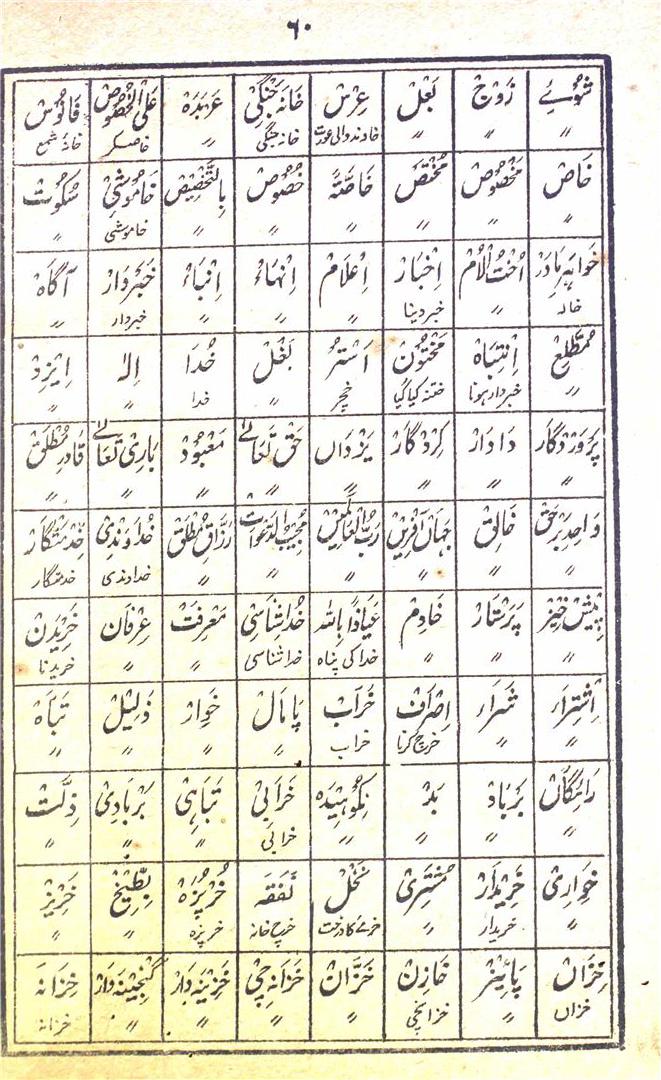 ۶۰
شوئے زوج بعل عرس خانہ جنگی عربدہ علی الخصوص فانوس
〃 〃 〃 خاوند والی عورت خانہ جنگی 〃 خاصکر خانۂ شمع
خاص مخصوص مختص خاصّۃً خصوص بالتخصیص خاموشی سکوت
〃 〃 〃 〃 〃 〃 خاموشی 〃
خواہر مادر اخت الام اخبار اعلام انہاء انباء خبردار آگاہ
خالہ 〃 خبر دینا 〃 〃 〃 خبردار 〃
مطّلع انتباہ مختون استر بغل خدا الہ ایزد
〃 خبردار ہونا ختنہ کیا گیا خچر 〃 خدا 〃 〃
پروردگار دادار کردگار یزداں حق تعالیٰ معبود باری تعالیٰ قادر مطلق
〃 〃 〃 〃 〃 〃 〃 〃
واحد برحق خالق جہاں آفریں رب العالمین مجیب الدعوات رزاق مطلق خداوندی خدمتگار
〃 〃 〃 〃 〃 〃 خداوندی خدمتگار
پیش خیز پرستار خادم عیاذاً باللہ خدا شناسی معرفت عرفان خریدن
〃 〃 〃 خدا کی پناہ خدا شناسی 〃 〃 خریدنا
اشتراء شراء اصراف خراب پامال خوار ذلیل تباہ
〃 〃 خرچ کرنا خراب 〃 〃 〃 〃
رائگاں برباد بد نکوہیدہ خرابی تباہی بربادی ذلت
〃 〃 〃 〃 خرابی 〃 〃 〃
خواری خریدار مشتری نخل نفقہ خرپزہ بطیخ خربز
〃 خریدار 〃 خرمے کا درخت خرچ خانہ خرپزہ 〃 〃
خزاں پائیز خازن خزّان خزانہ چی خزینہ دار گنجینہ دار خزانہ
خزاں 〃 خزانچی 〃 〃 〃 〃 خزانہ